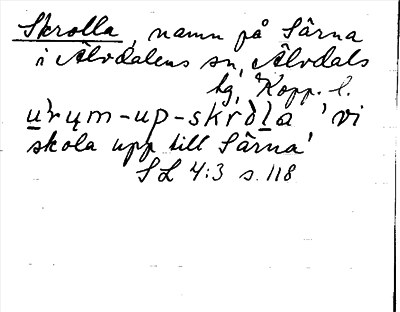 Skrolla, namn på Särna
i Älvdalens sn, Älvdals
hg, Kopp. l.
u̲'rųm-up-skròl̲a 'vi
skola upp till Särna'
SL 4:3 s. 118